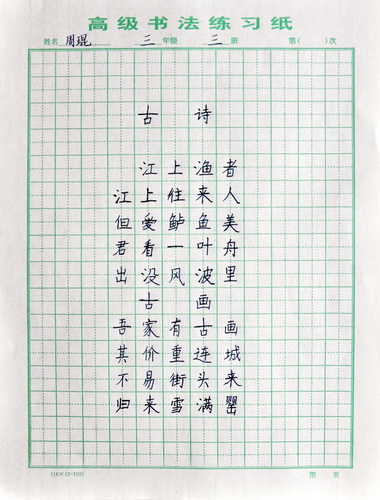 高级书法练习纸
姓名 周琨 三 年级 三 班 第( )次
古诗
江上渔者
江上往来人
但爱鲈鱼美
君看一叶舟
出没风波里
古画
吾家有古画
其价重连城
不易街头来
归来雪满罂
第 页